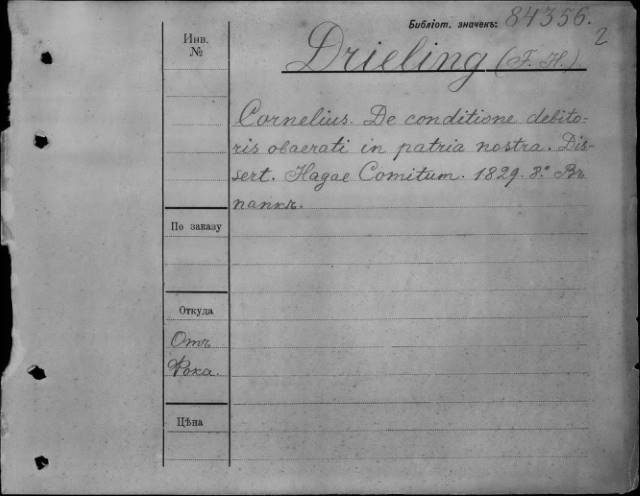 Библіот. значекъ: 84356.
2
Инв.
№
Drieling (F. H.).
Cornelius. De conditione debito-
ris obaerati in patria nostra. Dis-
sert. Hagae Comitum. 1829. 8.° Въ
папкѣ.
По заказу
Откуда
Отъ
Фока.
Цѣна